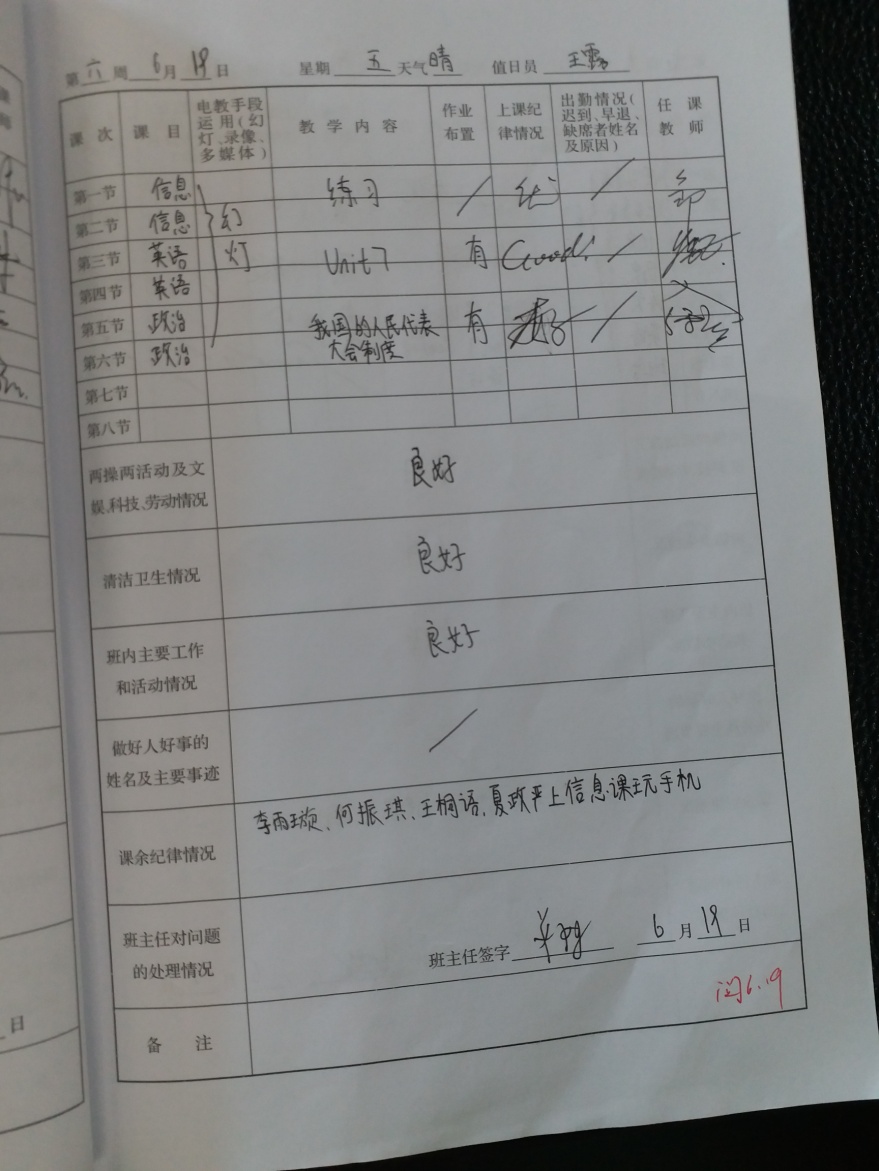 第六周 6月19日 星期五 天气晴 值日员 王露
课次 课目 电教手段运用(幻灯、录像、多媒体) 教学内容 作业布置 上课纪律情况 出勤情况(迟到、早退、缺席者姓名及原因) 任课教师
第一节 信息 练习 / 优 /
第二节 信息 幻
第三节 英语 灯 Unit7 有 Good! /
第四节 英语
第五节 政治 我国的人民代表 有 /
第六节 政治 大会制度
第七节
第八节
两操两活动及文
娱、科技、劳动情况
良好
清洁卫生情况 良好
班内主要工作
和活动情况
良好
做好人好事的
姓名及主要事迹
/
李雨璇、何振琪、王桐语、夏政严上信息课玩手机
课余纪律情况
班主任对问题
的处理情况
班主任签字 6月19日
阅6.19
备注
日